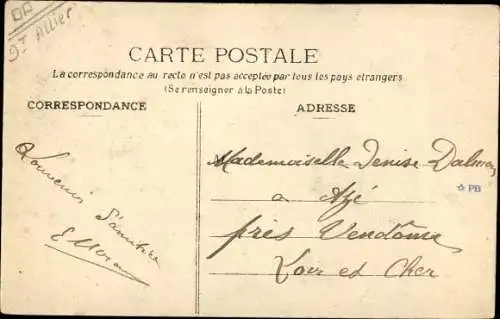 Dᵗ Allier
CARTE POSTALE
La correspondance au recto n'est pas acceptée par tous les pays étrangers
(Se renseigner à la Poste)
CORRESPONDANCE
ADRESSE
Souvenir
D'amitiés
Mademoiselle Denise
a Azé
près Vendôme
Loir et Cher
PB